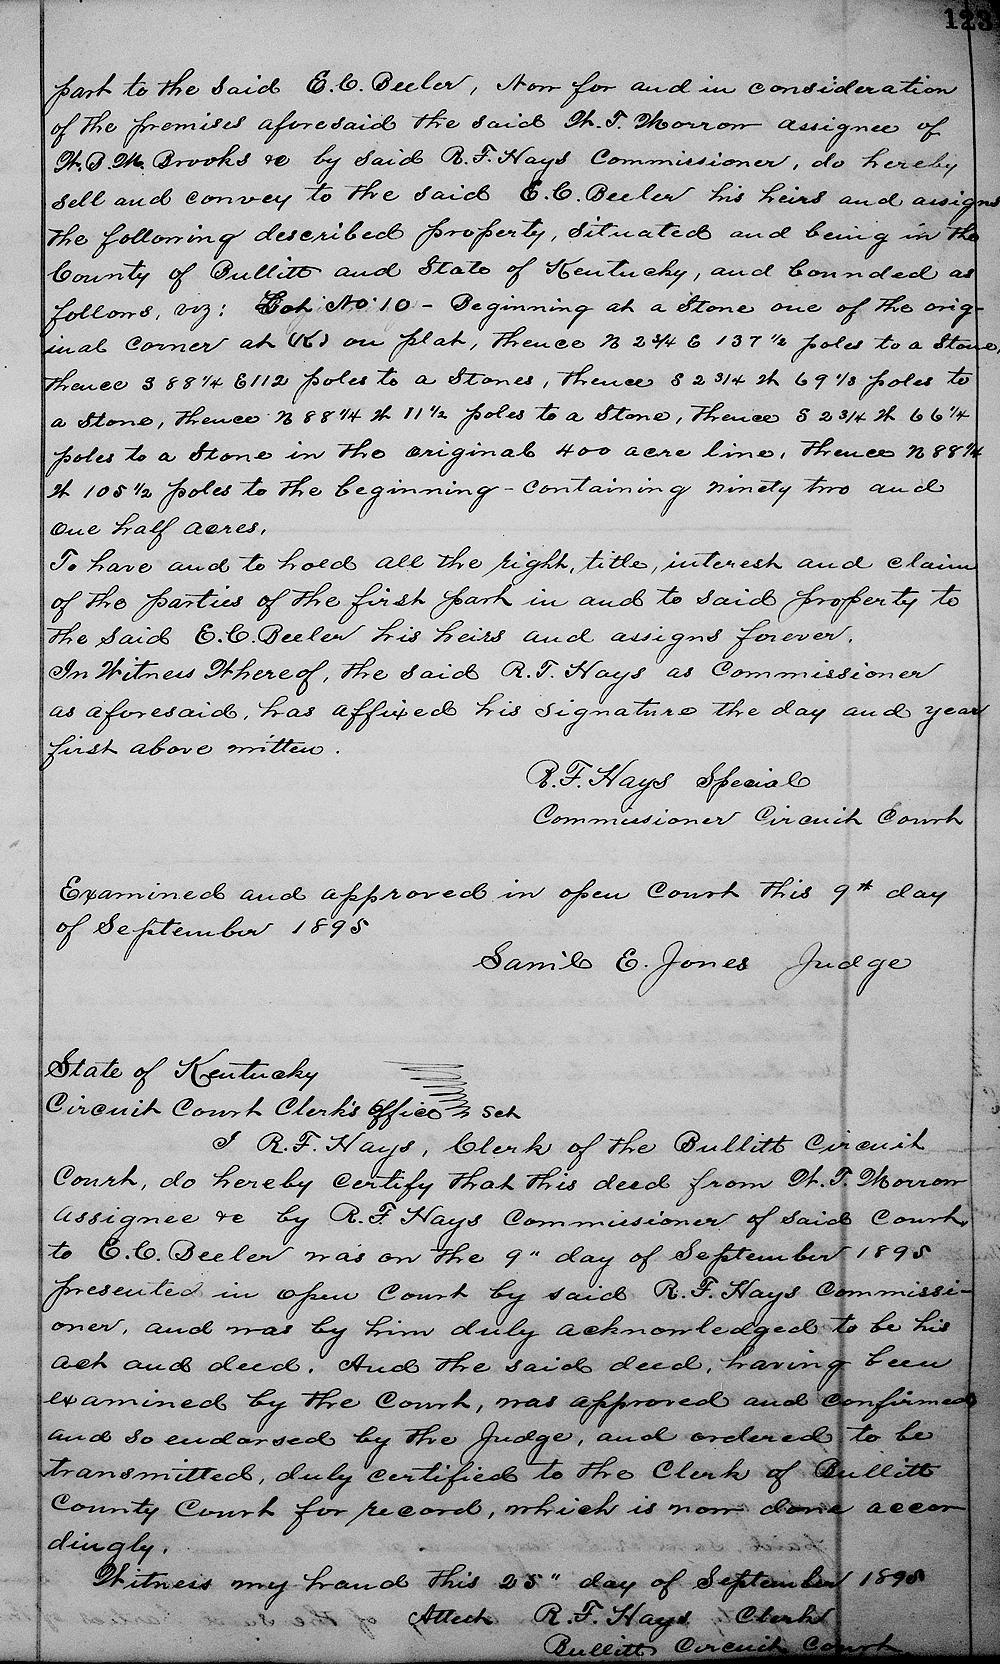 123
part to the said E.C. Beeler, Now for and in consideration
of the premises aforesaid the said W. T. Morrow assignee of
W. B. M. Brooks &c by said R. F. Hays Commissioner, do hereby
sell and convey to the said E.C. Beeler his heirs and assigns
the following described property, situated and being in the
County of Bullitt and State of Kentucky, and bounded as
follows, viz: Lot No. 10 - Beginning at a Stone one of the orig-
inal corner at (K) on plat, thence N 2 3/4 E 137 1/2 poles to a Stone,
thence S 88 1/4 E 112 poles to a Stones, thence S 2 3/4 W 69 1/3 poles to
a Stone, thence N 88 1/4 W 11 1/2 poles to a Stone, thence S 2 3/4 W 66 1/4
poles to a Stone in the original 400 acre line, thence N 88 1/4
W 105 1/2 poles to the beginning - containing ninety two and
one half acres.
To have and to hold all the right, title, interest and claim
of the parties of the first part in and to said property to
the said E.C. Beeler his heirs and assigns forever.
In Witness Whereof, the said R. F. Hays as Commissioner
as aforesaid, has affixed his signature the day and year
first above written.
R. F. Hays Special
Commissioner Circuit Court
Examined and approved in open Court this 9th day
of September 1895
Saml E. Jones Judge
State of Kentucky
Circuit Court Clerk's Office Sct
I R. F. Hays, Clerk of the Bullitt Circuit
Court, do hereby certify that this deed from W. T. Morrow
Assignee &c by R. F. Hays Commissioner of said Court,
to E.C. Beeler was on the 9" day of September 1895
presented in open Court by said R. F. Hays Commissi-
oner, and was by him duly acknowledged to be his
act and deed. And the said deed, having been
examined by the Court, was approved and confirmed
and so endorsed by the Judge, and ordered to be
transmitted, duly certified to the Clerk of Bullitt
County Court for record, which is now done accor
dingly.
Witness my hand this 25" day of September 1895
Attest R. F. Hays Clerk
Bullitt Circuit Court